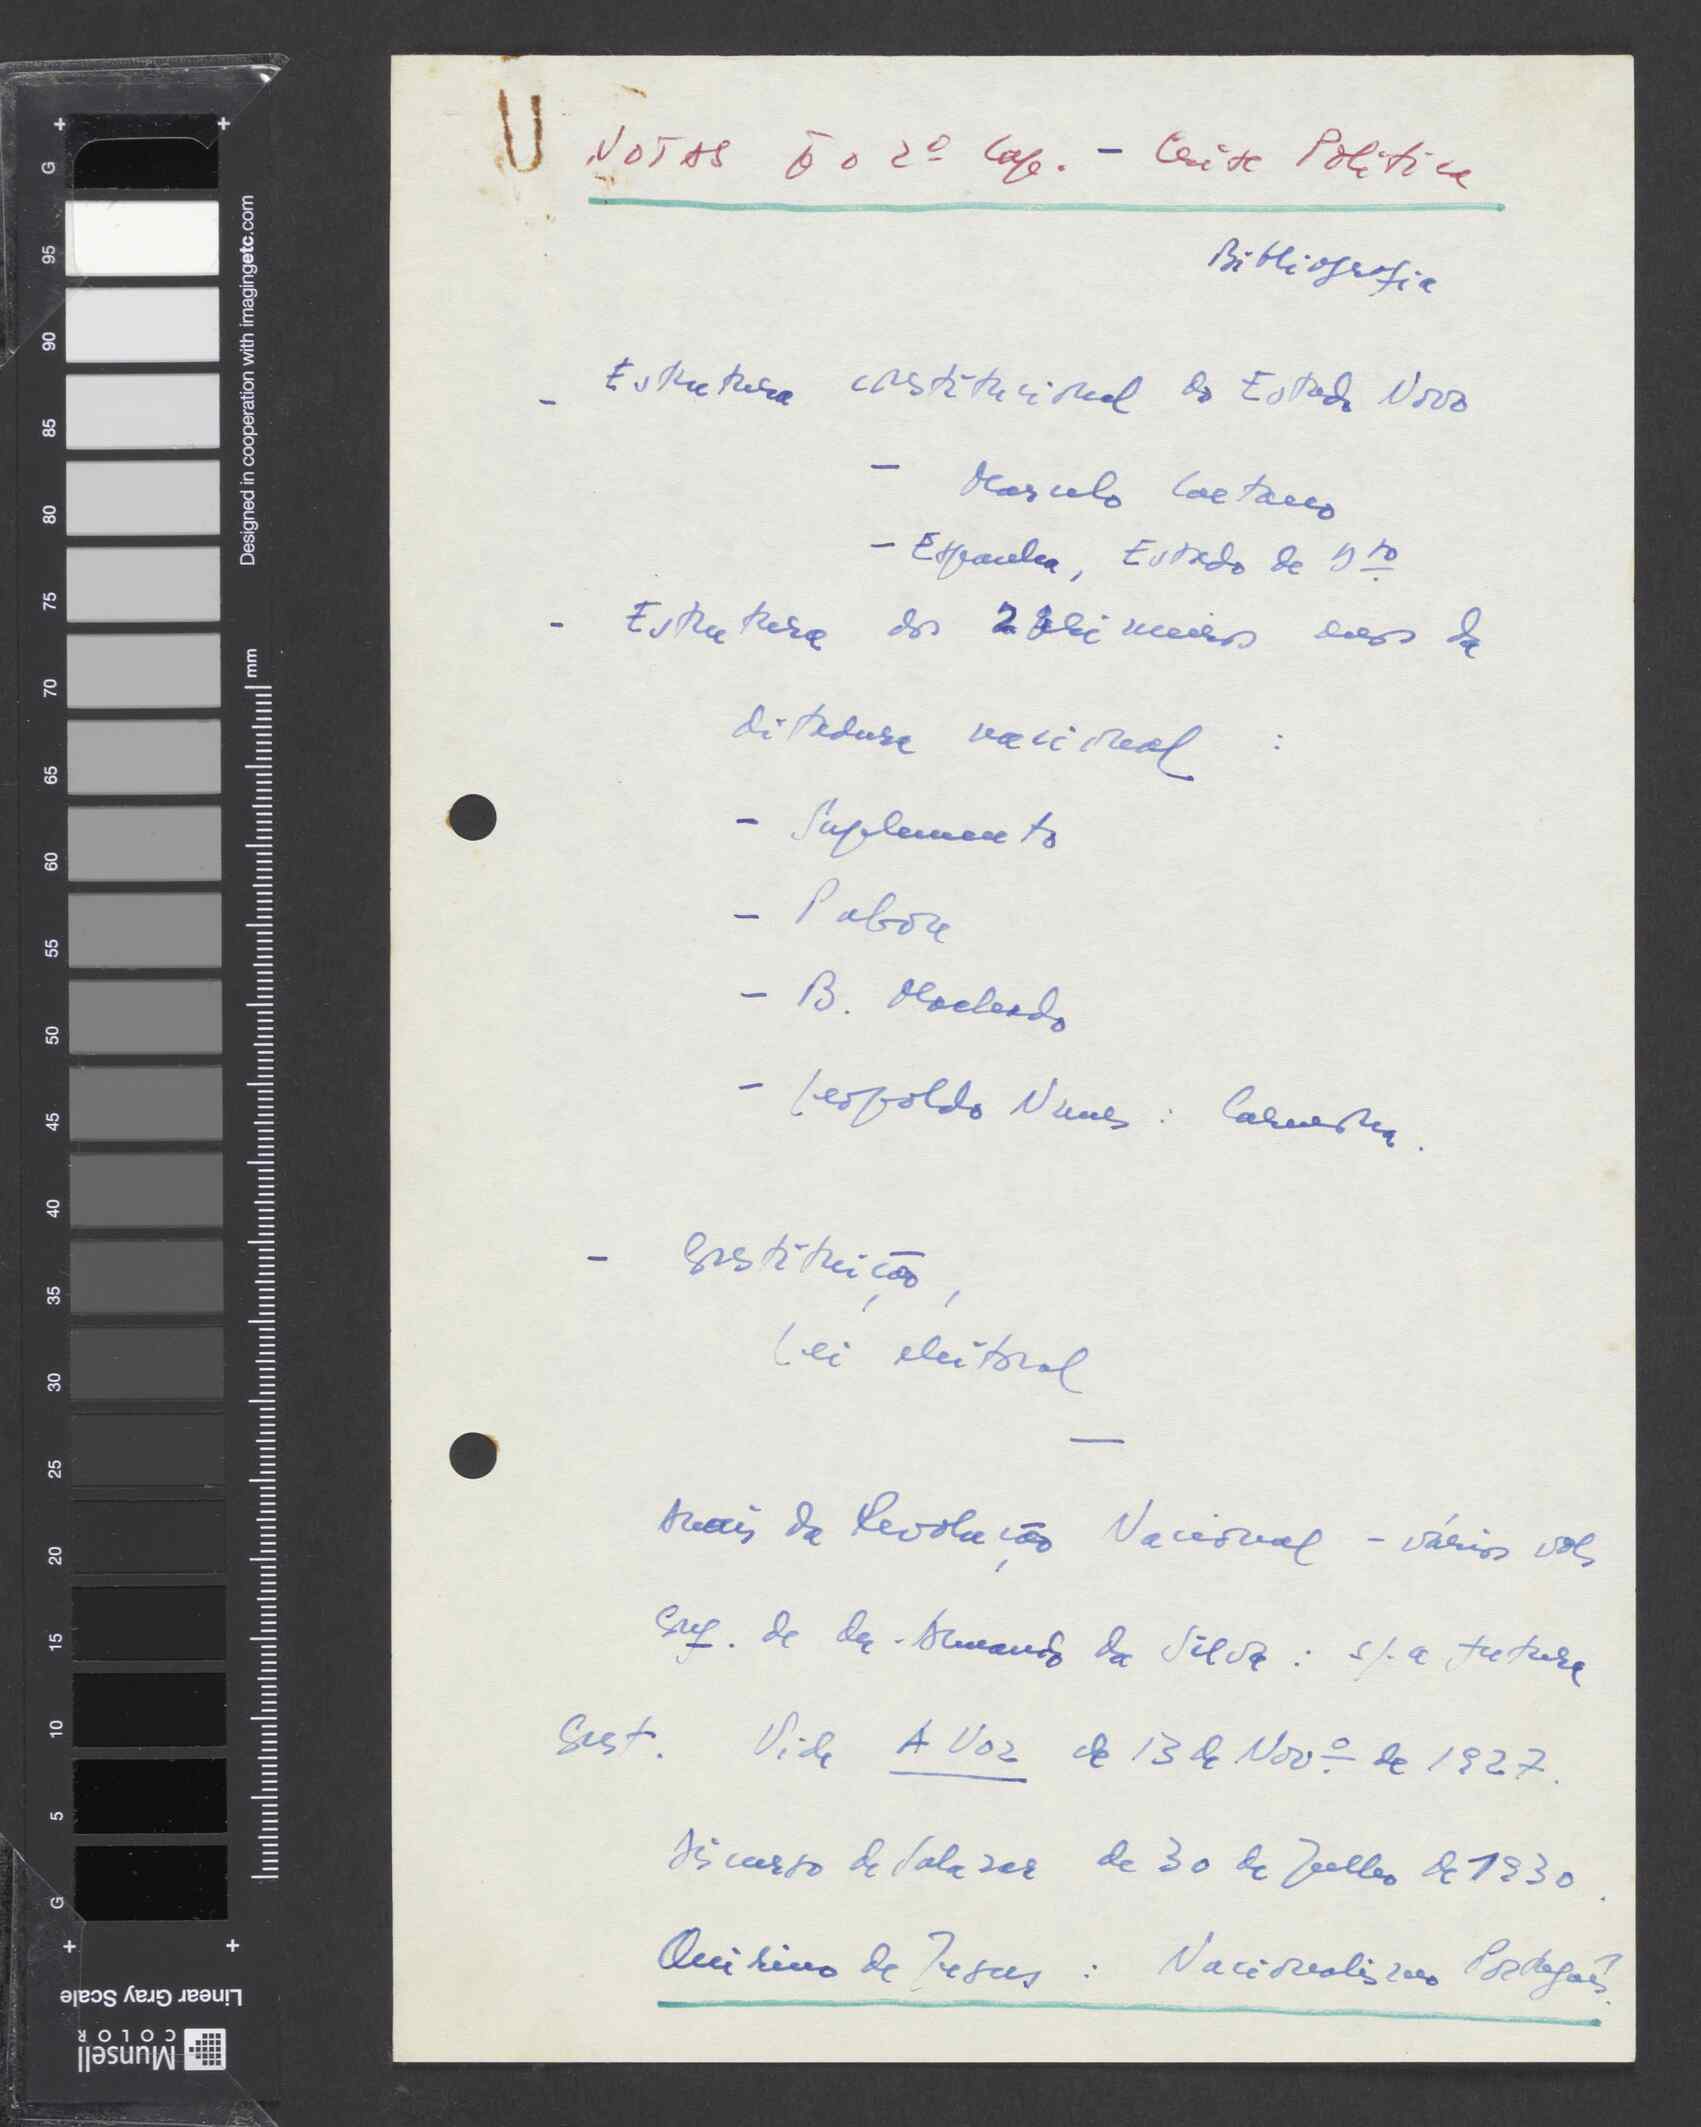 NOTAS p̄ o 2º Cap. - Crise Politica
Bibliografia
- Estrutura constitucional do Estado Novo
- Marcelo Caetano
- Espanha, Estado de Dto
- Estrutura dos primeiros anos da
ditadura nacional :
- Suplemento
- Pabón
- B. Machado
- Leopoldo Nunes : Carmona.
- Constituição,
Lei eleitoral
—
Anais da Revolução Nacional - vários vols
Conf. de Armando da Silva : s/. a futura
Const. Vide A Voz de 13 de Novº de 1927.
Discurso de Salazar de 30 de Julho de 1930.
Quirino de Jesus : Nacionalismo Português.
Designed in cooperation with imagingetc.com
mm
G 95 90 85 80 75 70 65 60 55 50 45 40 35 30 25 20 15 10 5 G
Linear Gray Scale
Munsell
COLOR